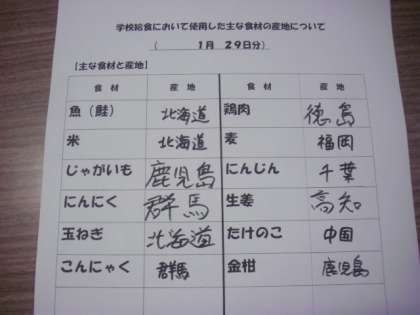 学校給食において使用した主な食材の産地について
( 1月 29日分)
【主な食材と産地】
食材 産地 食材 産地
魚(鮭) 北海道 鶏肉 徳島
米 北海道 麦 福岡
じゃがいも 鹿児島 にんじん 千葉
にんにく 群馬 生姜 高知
玉ねぎ 北海道 たけのこ 中国
こんにゃく 群馬 金柑 鹿児島